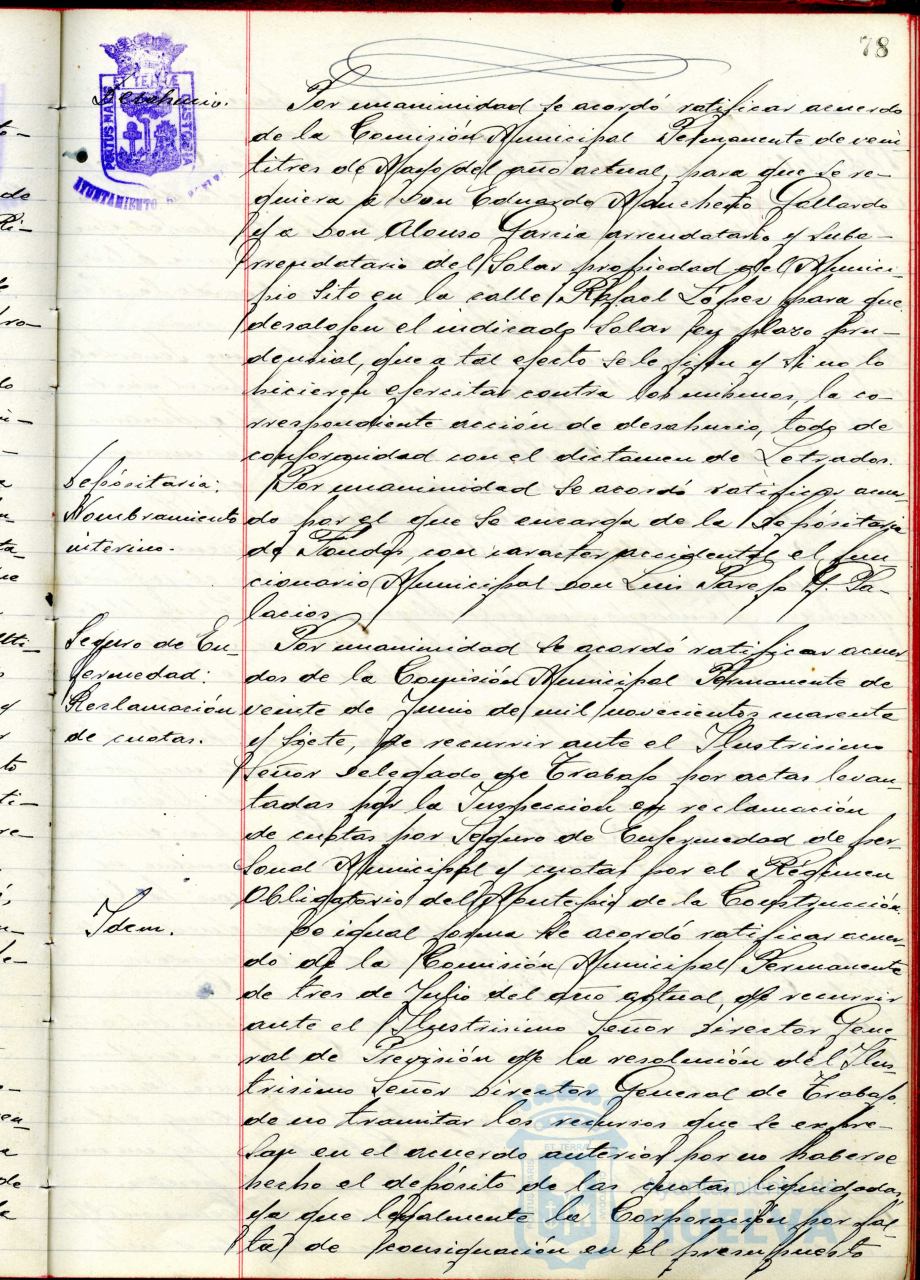 78
Desahucio.
Por unanimidad se acordó ratificar acuerdo
de la Comisión Municipal Permanente de vein
titres de Mayo del año actual, para que se re-
quiera a Don Eduardo Mancheño Gallardo
y a Don Alonso Garcia arrendatario y suba-
rrendatario del Solar propiedad del Munici-
pio Sito en la calle Rafael López para que
desalojen el indicado Solar en plazo pru-
dencial, que a tal efecto se le fijen y si no lo
hicieren ejercitar contra los mismos, la co-
rrespondiente acción de desahucio, todo de
conformidad con el dictamen de Letrados.
Depósitaria:
Nombramiento
interino.
Por unanimidad se acordó ratificar acuer-
do por el que se encarga de la Depósitaria
de Fondos con caracter accidental el fun
cionario Municipal Don Luis Parejo G. Pa-
lacios
Seguro de En-
fermedad:
Reclamación
de cuotas.
Por unanimidad se acordó ratificar acuer-
dos de la Comisión Municipal Permanente de
veinte de Junio de mil novecientos cuarenta
y siete, de recurrir ante el Ilustrisimo
Señor Delegado de Trabajo por actas levan-
tadas por la Inspeccion en reclamación
de cuotas por Seguro de Enfermedad de per-
sonal Municipal y cuotas por el Régimen
Obligatorio del Montepio de la Construcción.
Idem.
De igual forma se acordó ratificar acuer-
do de la Comisión Municipal Permanente
de tres de Julio del año actual, de recurrir
ante el Ilustrisimo Señor Director Gene
ral de Previsión de la resolución del Ilus-
trisimo Señor Director General de Trabajo
de no tramitar los recursos que se expre-
san en el acuerdo anterior por no haberse
hecho el depósito de las cuotas liquidadas
ya que legalmente la Corporación por fal-
ta de consignación en el presupuesto
PORTUS MARIS ET TERRAE CUSTODIA
AYUNTAMIENTO DE
Ayuntamiento de
HUELVA